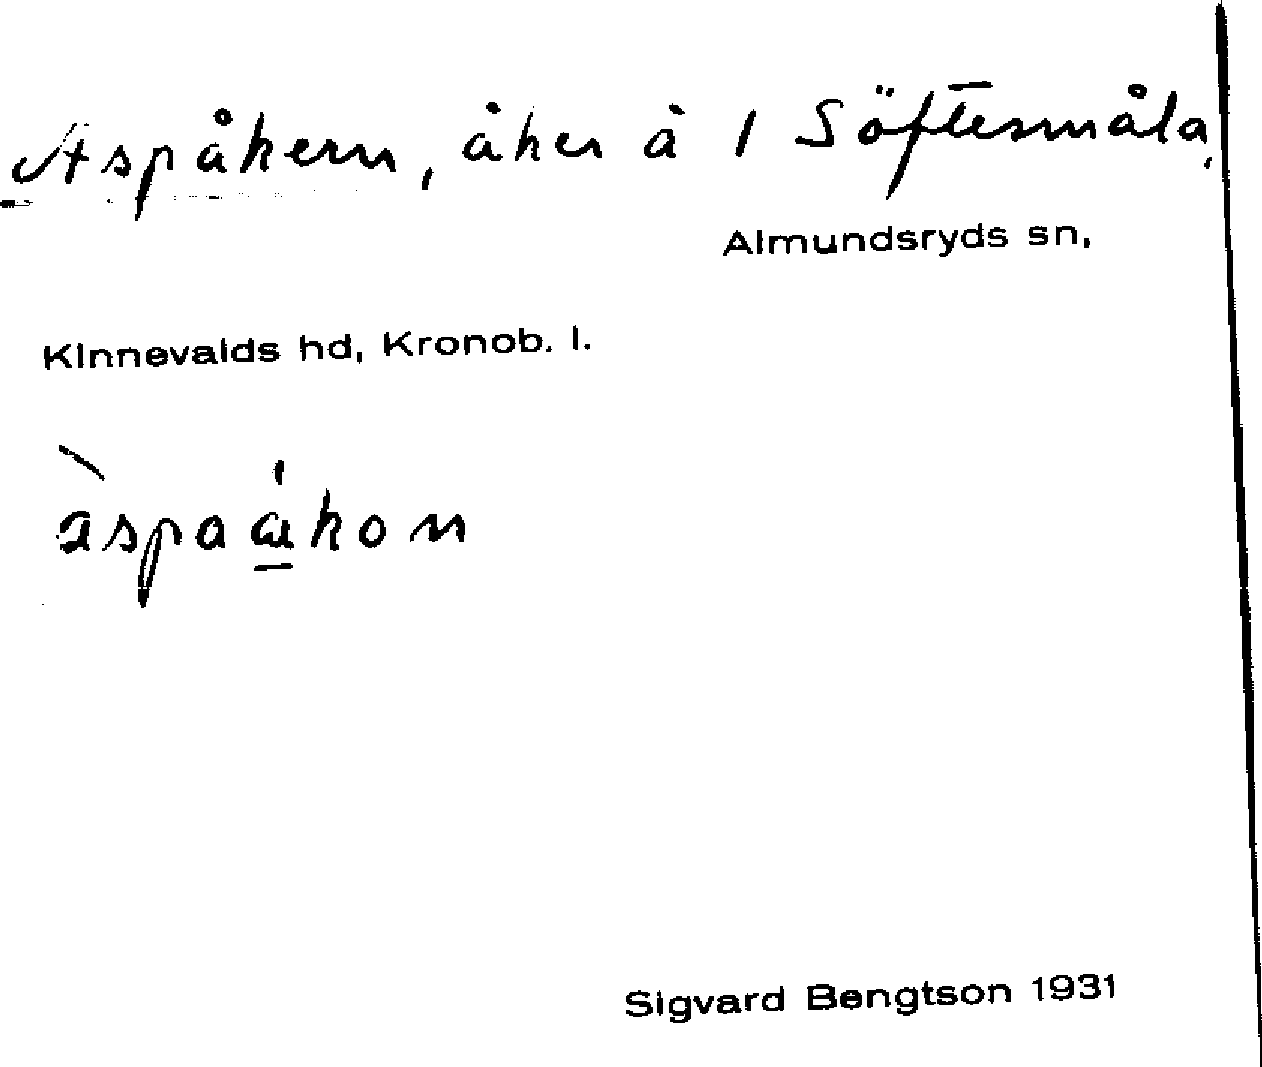 Aspåkern, åker å 1 Söftesmåla,
Almundsryds sn,
Kinnevalds hd, Kronob. l.
àspaákon
Sigvard Bengtson 1931